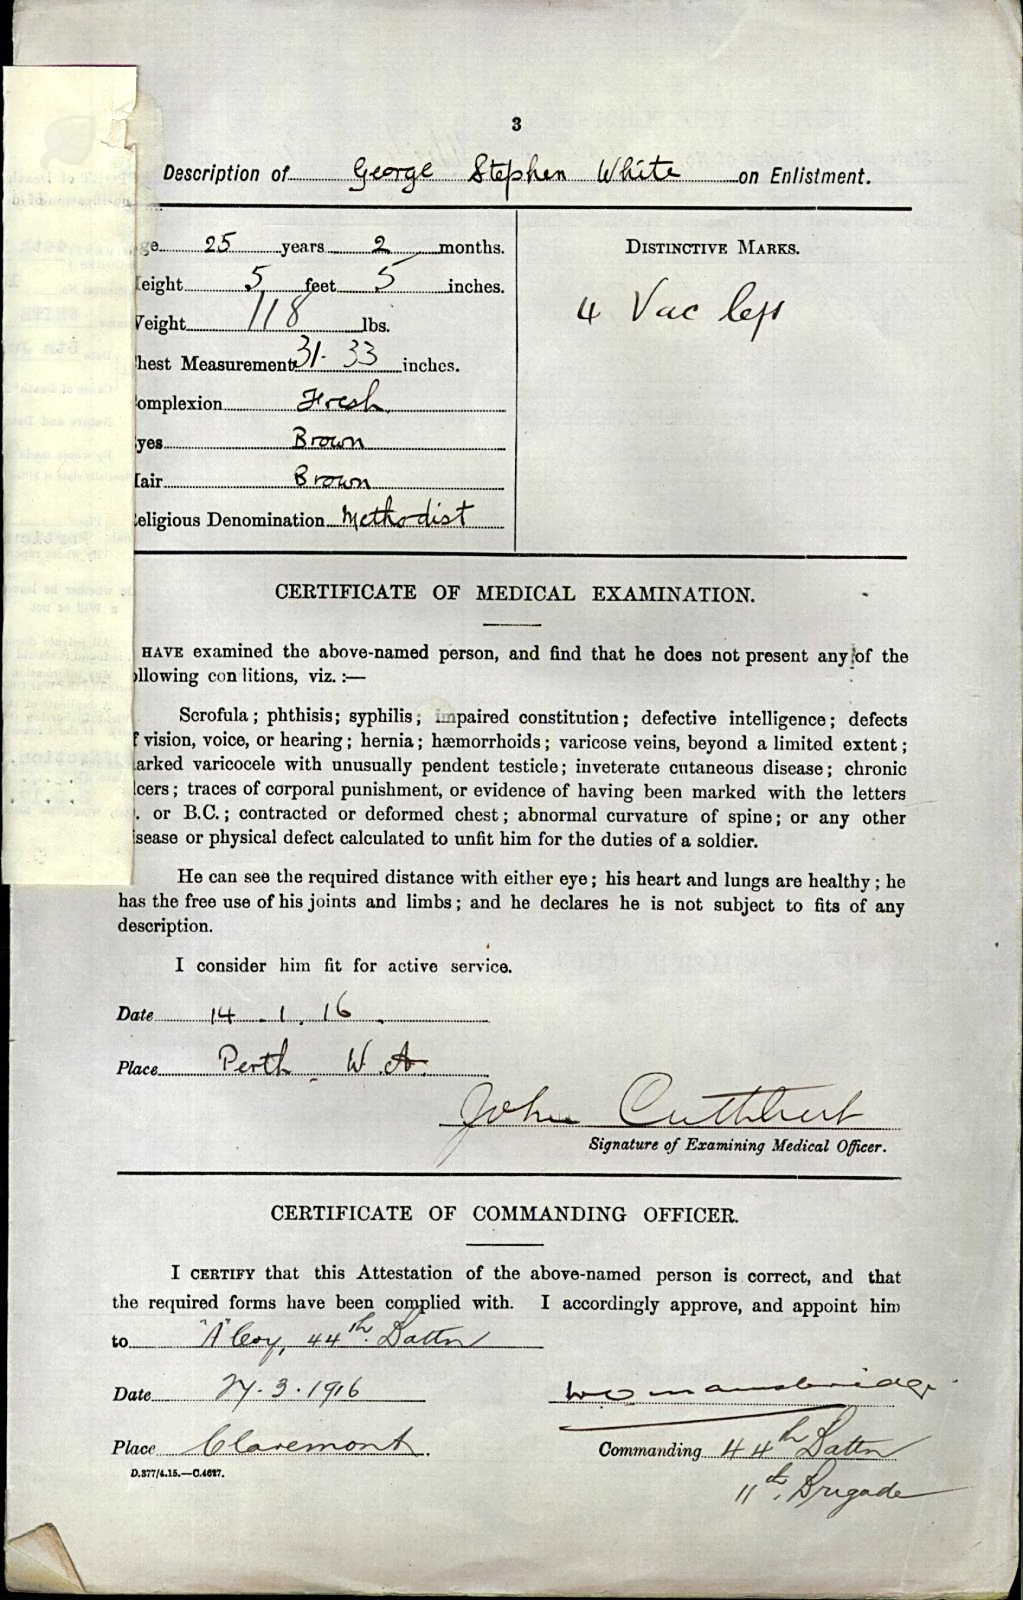 3
Description of George Stephen White on Enlistment.
ge 25 years 2 months.
eight 5 feet 5 inches.
Veight 118 lbs.
hest Measurement 31-33 inches.
omplexion Fresh
yes Brown
air Brown
eligious Denomination Methodist
DISTINCTIVE MARKS.
4 Vac left
CERTIFICATE OF MEDICAL EXAMINATION.
HAVE examined the above-named person, and find that he does not present any of the
ollowing conditions, viz. :—
Scrofula ; phthisis ; syphilis ; impaired constitution ; defective intelligence ; defects
f vision, voice, or hearing ; hernia ; hæmorrhoids ; varicose veins, beyond a limited extent ;
arked varicocele with unusually pendent testicle ; inveterate cutaneous disease ; chronic
lcers ; traces of corporal punishment, or evidence of having been marked with the letters
. or B.C. ; contracted or deformed chest ; abnormal curvature of spine ; or any other
isease or physical defect calculated to unfit him for the duties of a soldier.
He can see the required distance with either eye ; his heart and lungs are healthy ; he
has the free use of his joints and limbs ; and he declares he is not subject to fits of any
description.
I consider him fit for active service.
Date 14 . 1 . 16 .
Place Perth W.A.
John Cuthbert
Signature of Examining Medical Officer.
CERTIFICATE OF COMMANDING OFFICER.
I CERTIFY that this Attestation of the above-named person is correct, and that
the required forms have been complied with. I accordingly approve, and appoint him
to "A" Coy, 44th Battn
Date 27.3.1916
Place Claremont.
W O Mansbridge.
Commanding 44th Battn
11th Brigade
D.377/4.15.—C.4627.